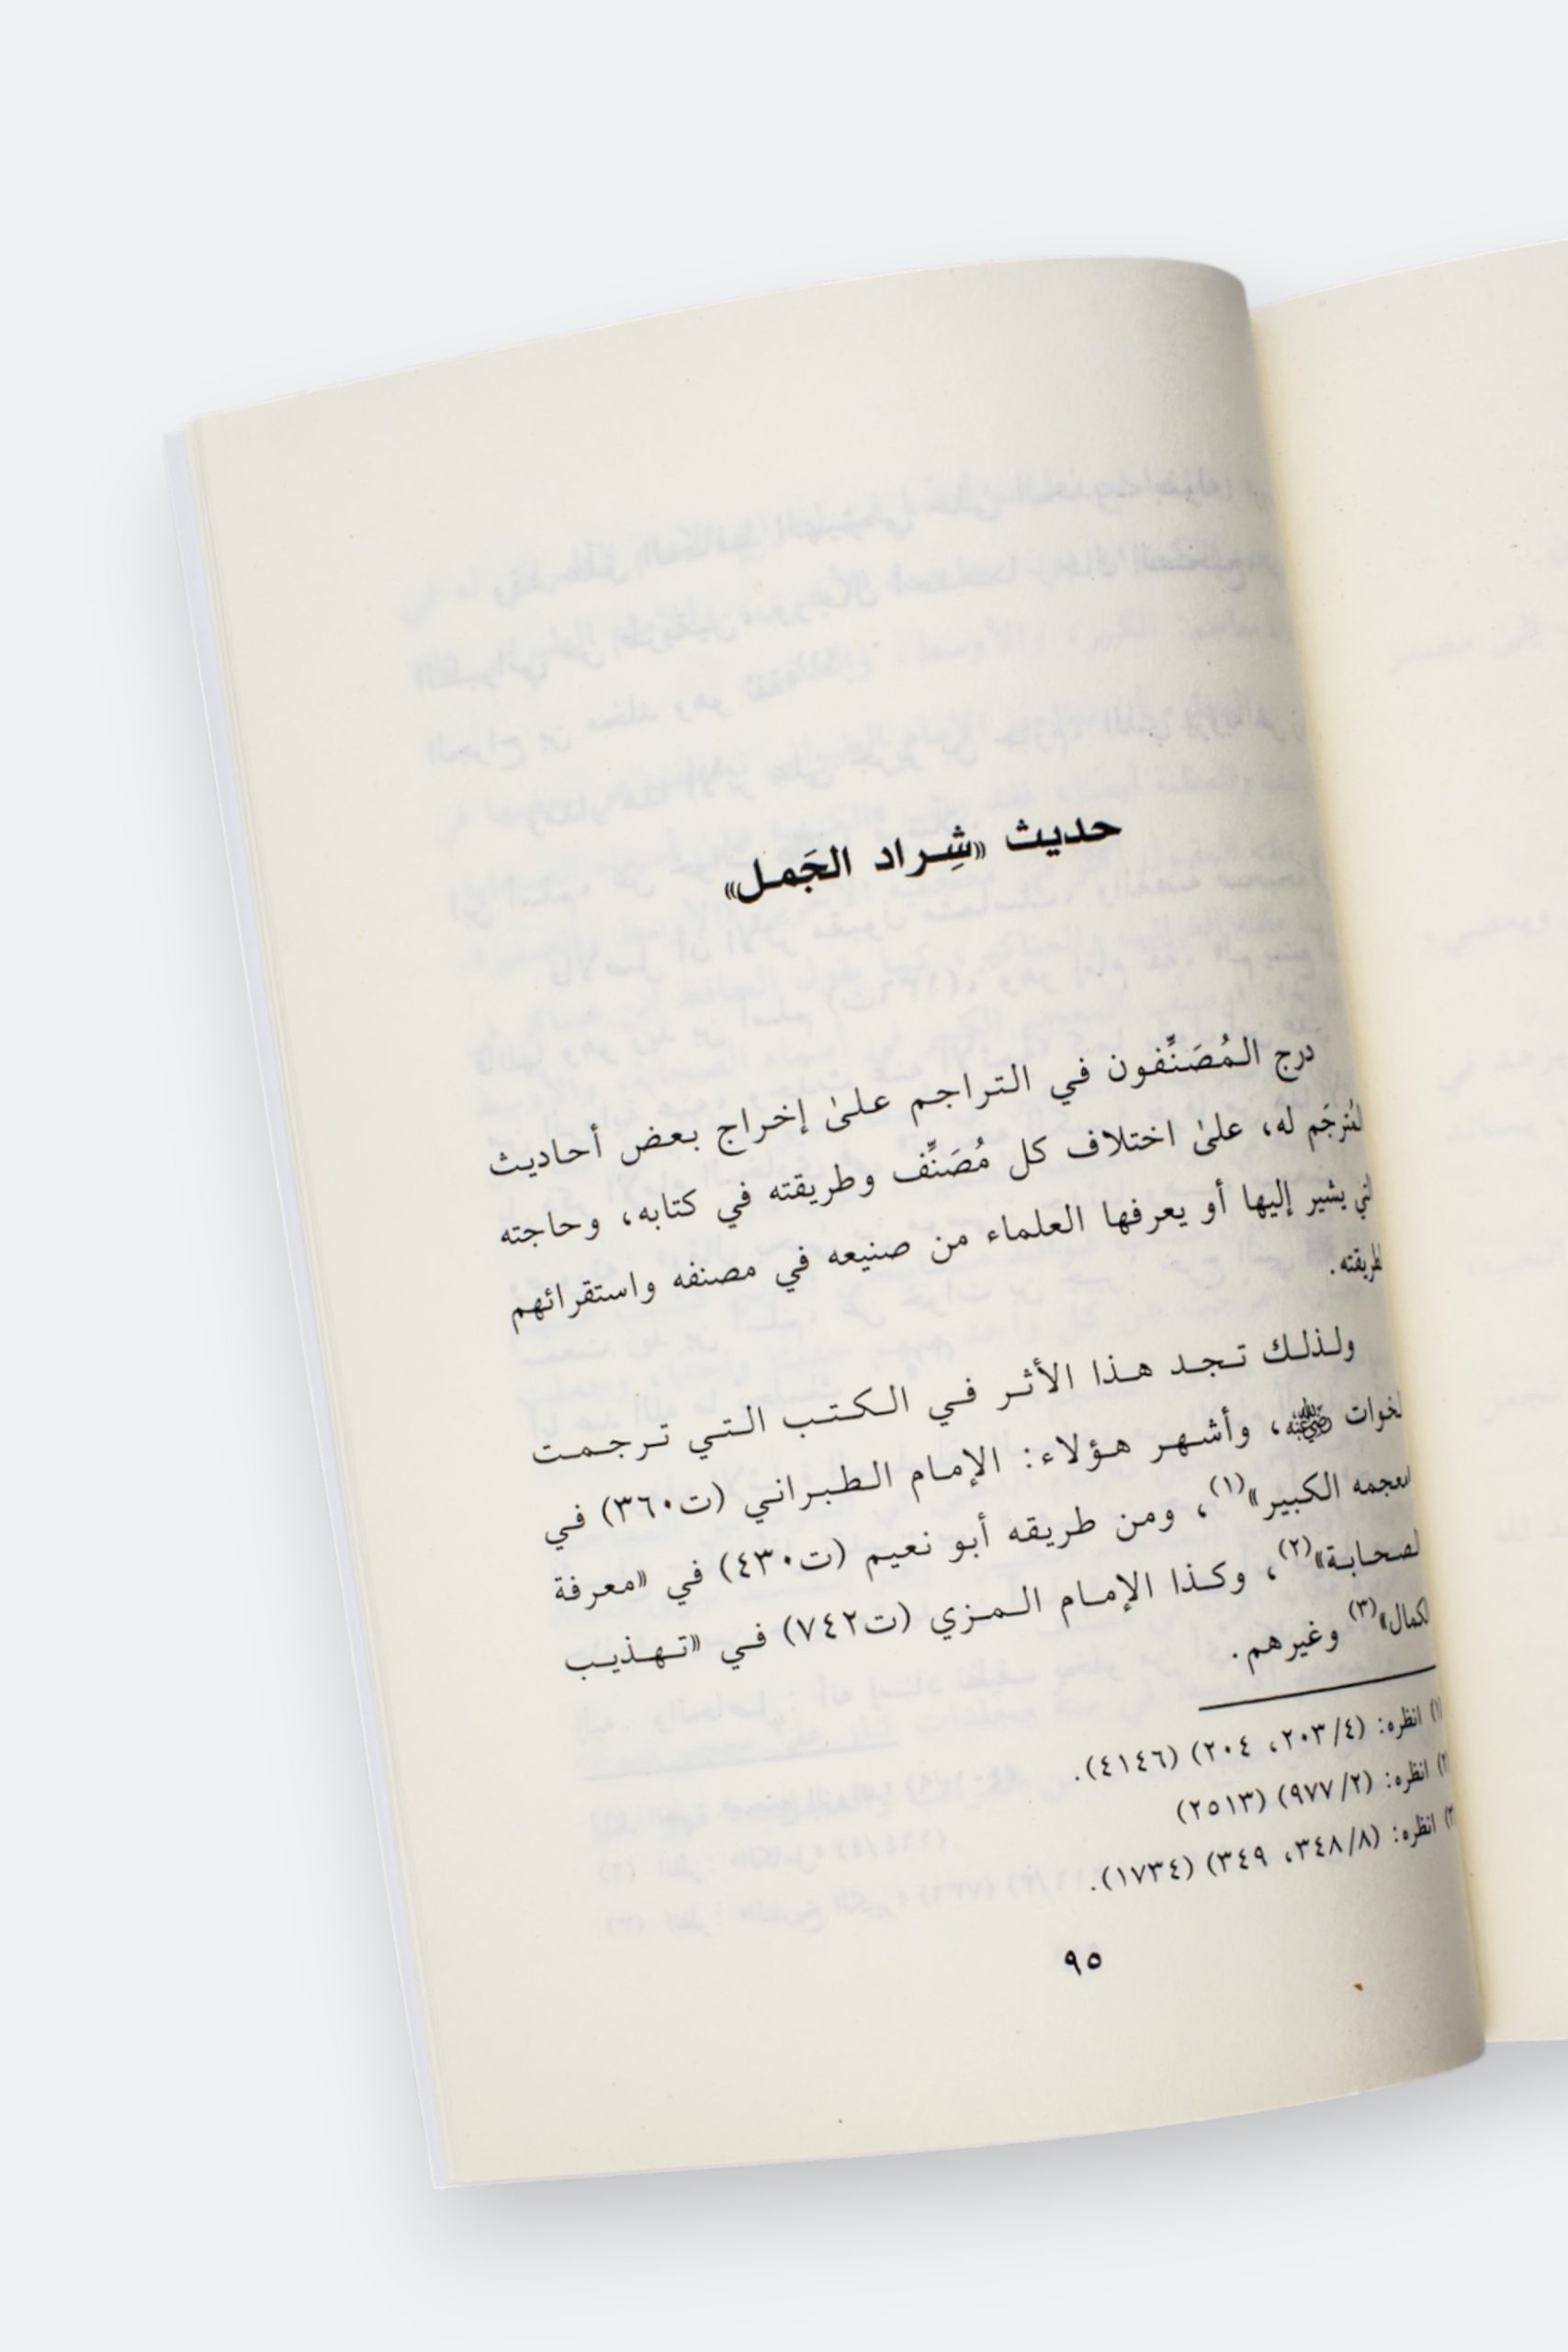 حديث «شِراد الجَمل»
درج المُصَنِّفون في التراجم علىٰ إخراج بعض أحاديث
المُترجَم له، علىٰ اختلاف كل مُصَنِّف وطريقته في كتابه، وحاجته
التي يشير إليها أو يعرفها العلماء من صنيعه في مصنفه واستقرائهم
لطريقته.
ولذلك تجد هذا الأثر في الكتب التي ترجمت
لخوات رضي الله عنه، وأشهر هؤلاء: الإمام الطبراني (ت٣٦٠) في
«معجمه الكبير»(١)، ومن طريقه أبو نعيم (ت٤٣٠) في «معرفة
الصحابة»(٢)، وكذا الإمام المزي (ت٧٤٢) في «تهذيب
الكمال»(٣) وغيرهم.
(١) انظره: (٢٠٣/٤، ٢٠٤) (٤١٤٦).
(٢) انظره: (٩٧٧/٢) (٢٥١٣)
(٣) انظره: (٣٤٨/٨، ٣٤٩) (١٧٣٤).
٩٥